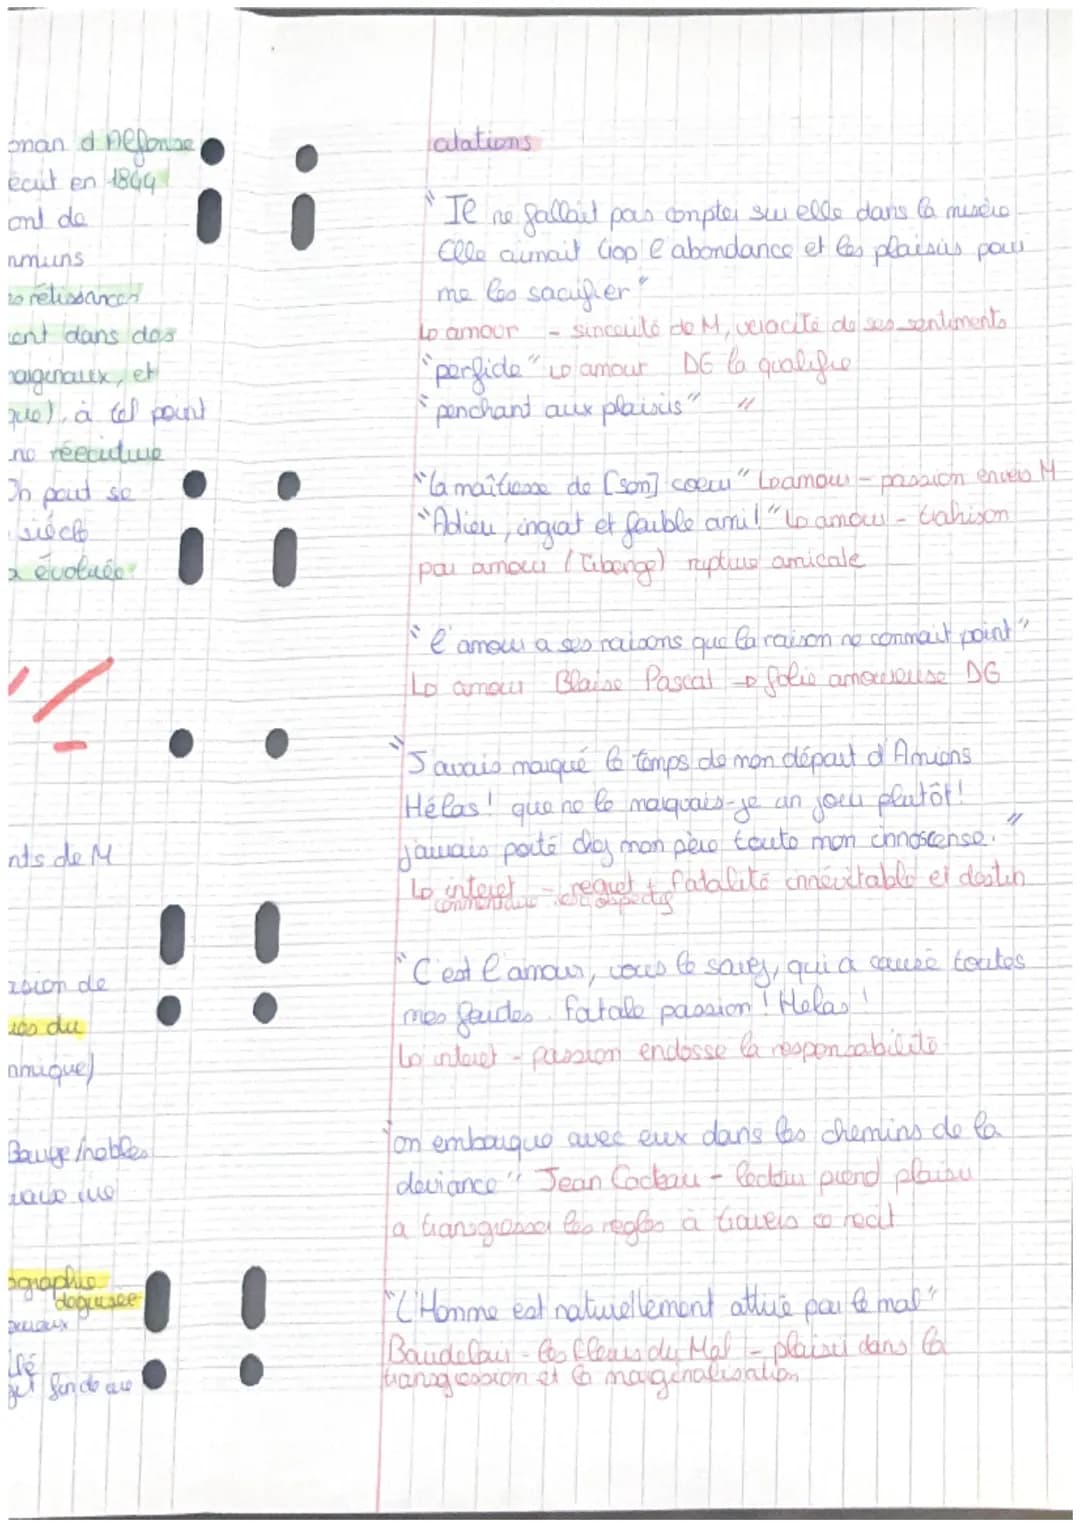 oman d'Alfonse
écrit en 1844
ont de
mmuns
rétissances
ent dans des
arginaux, et
que), à tel point
ne réécriture
On peut se
siècle
a évoluée
nts de M
rsion de
ues du
nnique)
Bauge/nobles
ographie
deguisee
citations
"Il ne fallait pas compter sur elle dans la misère
Elle aimait trop l'abondance et les plaisirs pour
me les sacrifier"
↳ amour - sincerité de M, veracité de ses sentiments
"perfide" ↳ amour DG la qualifie
"penchant aux plaisirs" //
"la maîtresse de [son] coeur" ↳ amour - passion envers M
"Adieu, ingrat et faible ami!" ↳ amour - trahison
par amour (Tiberge) rupture amicale
"l'amour a ses raisons que la raison ne connait point"
↳ amour Blaise Pascal → folie amoureuse DG
"J'avais marqué le temps de mon départ d'Amiens
Hélas! que ne le marquais-je un jour plutôt!
j'aurais porté chez mon père toute mon innoscense."
↳ interet - regret + fatalité innévitable et destin
commentaire retrospectif
"C'est l'amour, vous le savez, qui a causé toutes
mes fautes. fatale passion! Helas!
↳ interet - passion endosse la responsabilité
"on embarque avec eux dans les chemins de la
deviance" Jean Cocteau - lecteur prend plaisir
a transgresser les règles à travers ce recit
"L'Homme est naturellement attiré par le mal"
Baudelair - les fleurs du Mal - plaisir dans la
transgression et la marginalisation